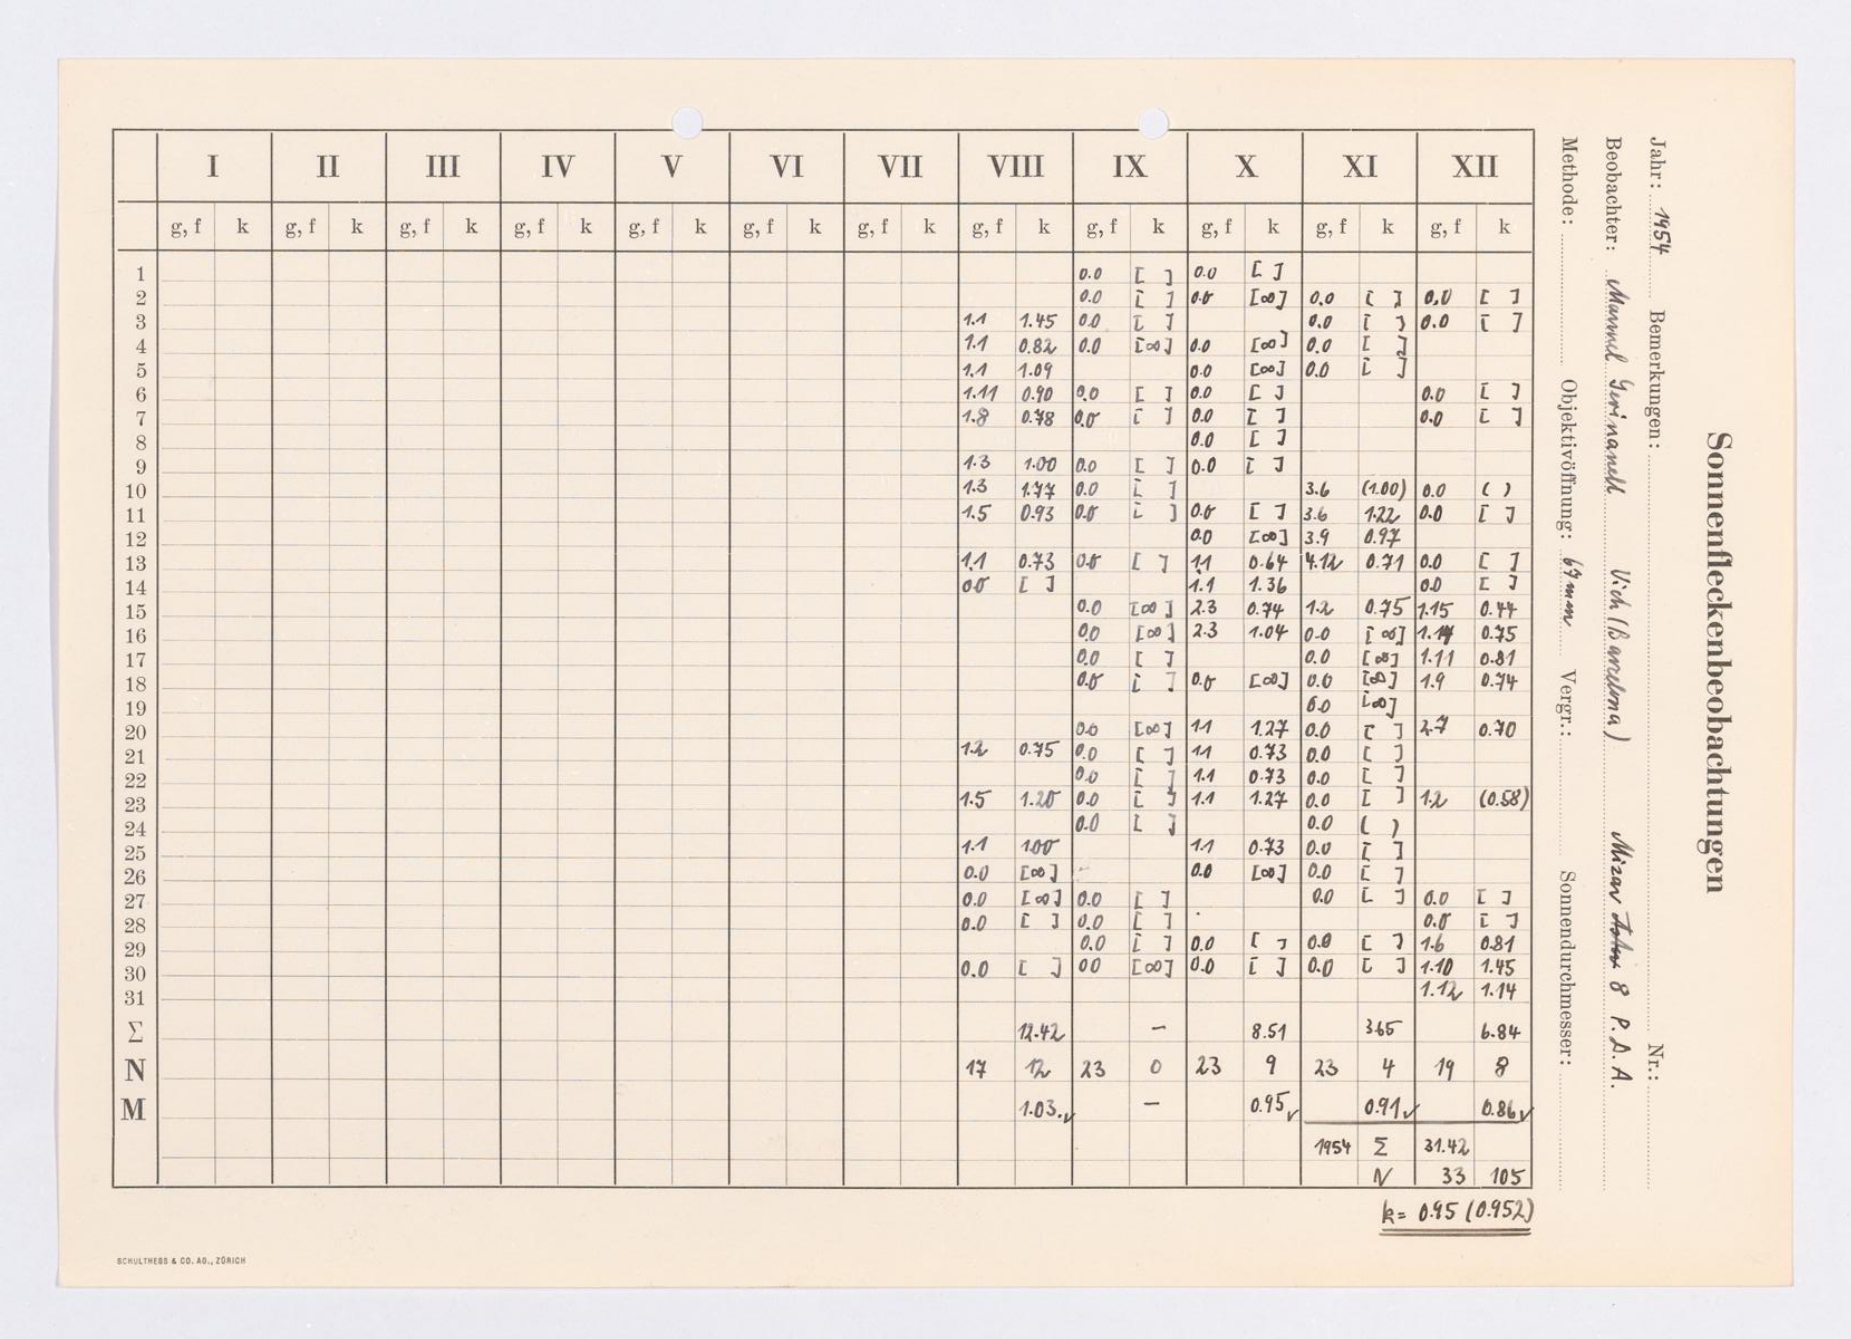 Sonnenfleckenbeobachtungen
Jahr: 1954 Bemerkungen: Nr.:
Beobachter: Manuel Vich (Barcelona) Mizar 8 P. A. A.
Methode: Objektivöffnung: 67 mm Vergr.: Sonnendurchmesser:
I II III IV V VI VII VIII IX X XI XII
g, f k g, f k g, f k g, f k g, f k g, f k g, f k g, f k g, f k g, f k g, f k g, f k
1 0.0 [ ] 0.0 [ ]
2 0.0 [ ] 0.0 [∞] 0.0 [ ] 0.0 [ ]
3 1.1 1.45 0.0 [ ] 0.0 [ ] 0.0 [ ]
4 1.1 0.82 0.0 [∞] 0.0 [∞] 0.0 [ ]
5 1.1 1.09 0.0 [∞] 0.0 [ ]
6 1.11 0.90 0.0 [ ] 0.0 [ ] 0.0 [ ]
7 1.8 0.78 0.0 [ ] 0.0 [ ] 0.0 [ ]
8 0.0 [ ]
9 1.3 1.00 0.0 [ ] 0.0 [ ]
10 1.3 1.77 0.0 [ ] 3.6 (1.00) 0.0 ( )
11 1.5 0.93 0.0 [ ] 0.0 [ ] 3.6 1.22 0.0 [ ]
12 0.0 [∞] 3.9 0.97
13 1.1 0.73 0.0 [ ] 1.1 0.64 4.12 0.71 0.0 [ ]
14 0.0 [ ] 1.1 1.36 0.0 [ ]
15 0.0 [∞] 2.3 0.74 1.2 0.75 1.15 0.44
16 0.0 [∞] 2.3 1.04 0.0 [∞] 0.75
17 0.0 [ ] 0.0 [∞] 1.11 0.81
18 0.0 [ ] 0.0 [∞] 0.0 [∞] 1.9 0.74
19 0.0 [∞]
20 0.0 [∞] 1.1 1.27 0.0 [ ] 2.7 0.70
21 1.2 0.75 0.0 [ ] 1.1 0.73 0.0 [ ]
22 0.0 [ ] 1.1 0.73 0.0 [ ]
23 1.5 1.20 0.0 [ ] 1.1 1.27 0.0 [ ] 1.2 (0.58)
24 0.0 [ ] 0.0 ( )
25 1.1 1.00 1.1 0.73 0.0 [ ]
26 0.0 [∞] 0.0 [∞] 0.0 [ ]
27 0.0 [∞] 0.0 [ ] 0.0 [ ] 0.0 [ ]
28 0.0 [ ] 0.0 [ ] 0.0 [ ]
29 0.0 [ ] 0.0 [ ] 0.0 [ ] 1.6 0.81
30 0.0 [ ] 0.0 [∞] 0.0 [ ] 0.0 [ ] 1.10 1.45
31 1.12 1.14
Σ 12.42 – 8.51 3.65 6.84
N 17 12 23 0 23 9 23 4 19 8
M 1.03 – 0.95 0.91 0.86
1954 Σ 31.42
N 33 105
k = 0.95 (0.952)
SCHULTHESS & CO. AG., ZÜRICH